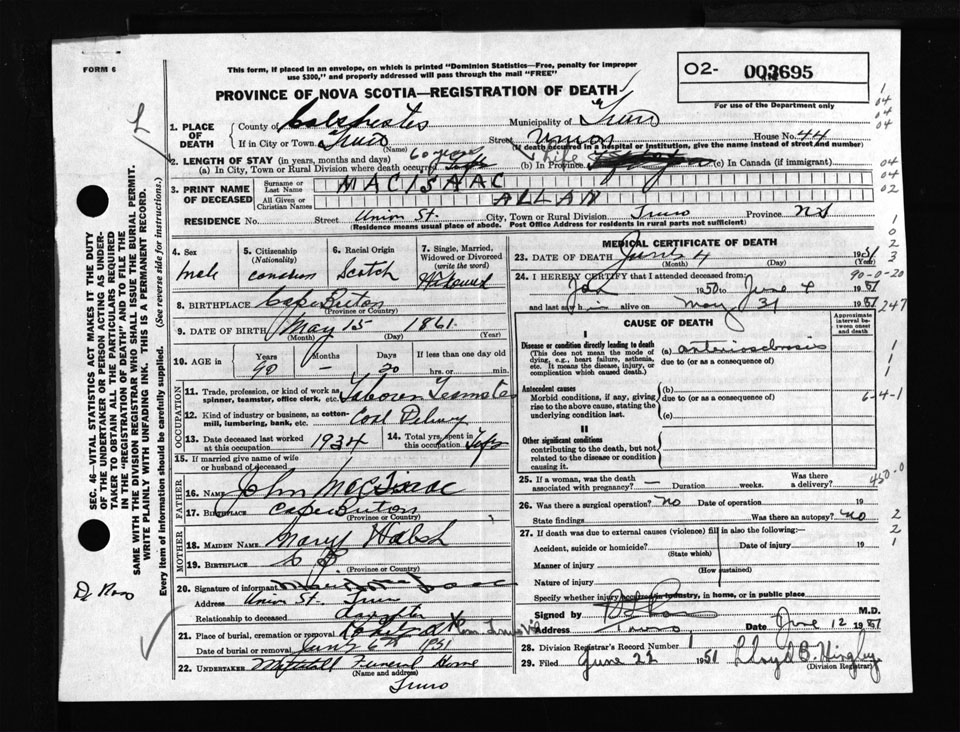 FORM 6
This form, if placed in an envelope, on which is printed "Dominion Statistics—Free, penalty for improper
use $300," and properly addressed will pass through the mail "FREE"
O2- 003695
PROVINCE OF NOVA SCOTIA—REGISTRATION OF DEATH
For use of the Department only
1. PLACE OF DEATH
County of Colchester Municipality of Truro
If in City or Town Truro Street Union House No. 44
(Name) (If death occurred in a hospital or institution, give the name instead of street and number)
2. LENGTH OF STAY (in years, months and days)
(a) In City, Town or Rural Division where death occurred 60 years (b) In Province Life (c) In Canada (if immigrant)
3. PRINT NAME OF DECEASED
Surname or Last Name MACISAAC
All Given or Christian Names ALLAN
RESIDENCE No. Street Union St. City, Town or Rural Division Truro Province NS
(Residence means usual place of abode. Post Office Address for residents in rural parts not sufficient)
4. Sex male
5. Citizenship (Nationality)
6. Racial Origin Scotch
7. Single, Married, Widowed or Divorced (write the word) Widowed
8. BIRTHPLACE Cape Breton
(Province or Country)
9. DATE OF BIRTH May 15 1861
(Month) (Day) (Year)
10. AGE in Years 90 Months – Days 20 If less than one day old hrs. or min.
OCCUPATION
11. Trade, profession, or kind of work as spinner, teamster, office clerk, etc. Laborer Teamster
12. Kind of industry or business, as cotton-mill, lumbering, bank, etc. Coal Delivery
13. Date deceased last worked at this occupation 1934
14. Total yrs. spent in this occupation
15. If married give name of wife or husband of deceased
FATHER
16. NAME John MacIsaac
17. BIRTHPLACE Cape Breton
(Province or Country)
MOTHER
18. MAIDEN NAME Mary Walsh
19. BIRTHPLACE C B.
(Province or Country)
20. Signature of informant
Address Union St. Truro
Relationship to deceased daughter
21. Place of burial, cremation or removal
Date of burial or removal June 6th 1951
22. UNDERTAKER Funeral Home
(Name and address)
Truro
MEDICAL CERTIFICATE OF DEATH
23. DATE OF DEATH June 4 1951
(Month) (Day) (Year)
24. I HEREBY CERTIFY that I attended deceased from:
Jan 1950 to June 4 1951
and last saw him alive on May 31 1951
CAUSE OF DEATH
Approximate interval between onset and death
I
Disease or condition directly leading to death (a) arteriosclerosis
(This does not mean the mode of dying, e.g., heart failure, asthenia, etc. It means the disease, injury, or complication which caused death.)
due to (or as a consequence of)
Antecedent causes (b)
Morbid conditions, if any, giving rise to the above cause, stating the underlying condition last.
due to (or as a consequence of)
(c)
II
Other significant conditions
contributing to the death, but not related to the disease or condition causing it.
25. If a woman, was the death associated with pregnancy? – Duration weeks. Was there a delivery?
26. Was there a surgical operation? No Date of operation 19
State findings Was there an autopsy? No
27. If death was due to external causes (violence) fill in also the following:—
Accident, suicide or homicide? Date of injury 19
(State which)
Manner of injury
(How sustained)
Nature of injury
Specify whether injury occurred in industry, in home, or in public place
Signed by M.D.
Address Truro Date June 12 1951
28. Division Registrar's Record Number
29. Filed June 22 1951 Lloyd B.
(Division Registrar)
SEC. 46—VITAL STATISTICS ACT MAKES IT THE DUTY
OF THE UNDERTAKER OR PERSON ACTING AS UNDERTAKER
TO OBTAIN ALL THE PARTICULARS REQUIRED
IN THE "REGISTRATION OF DEATH" AND TO FILE THE
SAME WITH THE DIVISION REGISTRAR WHO SHALL ISSUE THE BURIAL PERMIT.
WRITE PLAINLY WITH UNFADING INK. THIS IS A PERMANENT RECORD.
Every item of information should be carefully supplied. (See reverse side for instructions.)
1
04
04
04
04
04
02
1
0
2
3
90-0-20
247
1
1
1
6-4-1
450-0
2
2
1